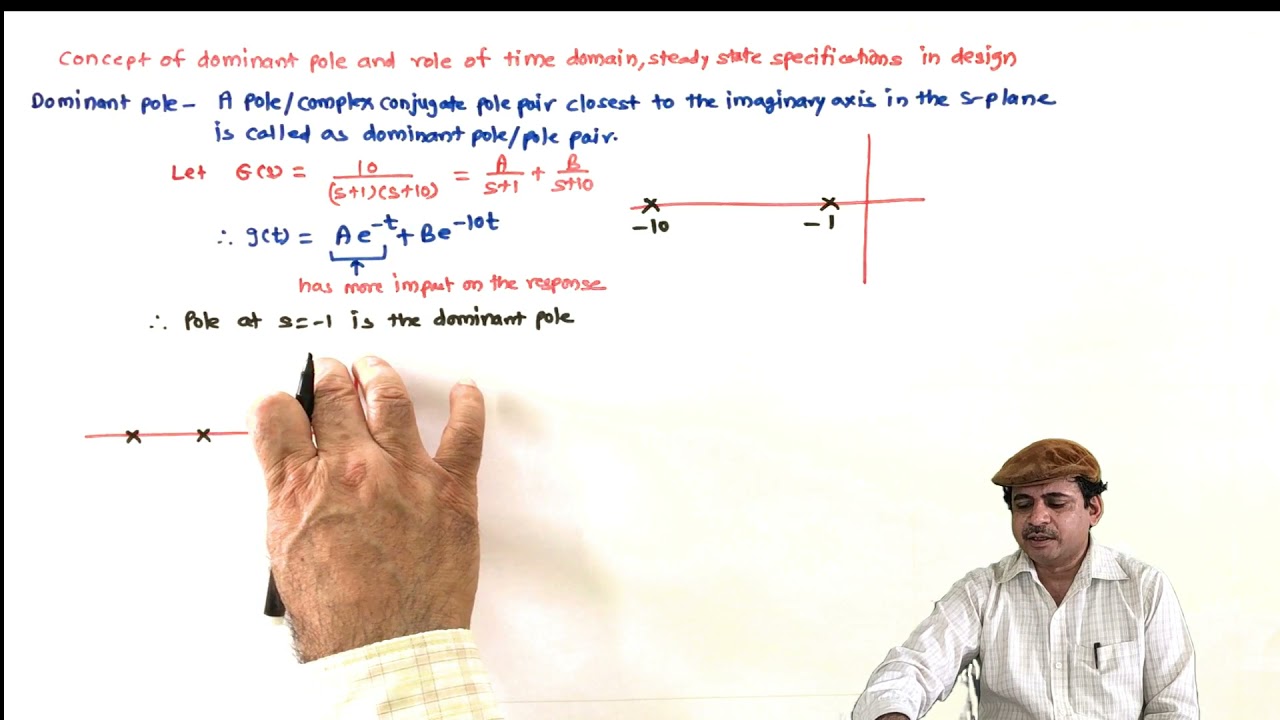 Concept of dominant pole and role of time domain, steady state specifications in design
Dominant pole - A pole/complex conjugate pole pair closest to the imaginary axis in the s-plane
is called as dominant pole/pole pair.
Let G(s) = 10/(s+1)(s+10) = A/s+1 + B/s+10
∴ g(t) = Ae^-t + Be^-10t
-10 -1
has more impact on the response
∴ Pole at s=-1 is the dominant pole